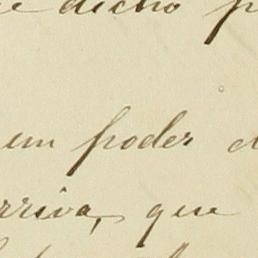 dicho
em poder
rriva, que